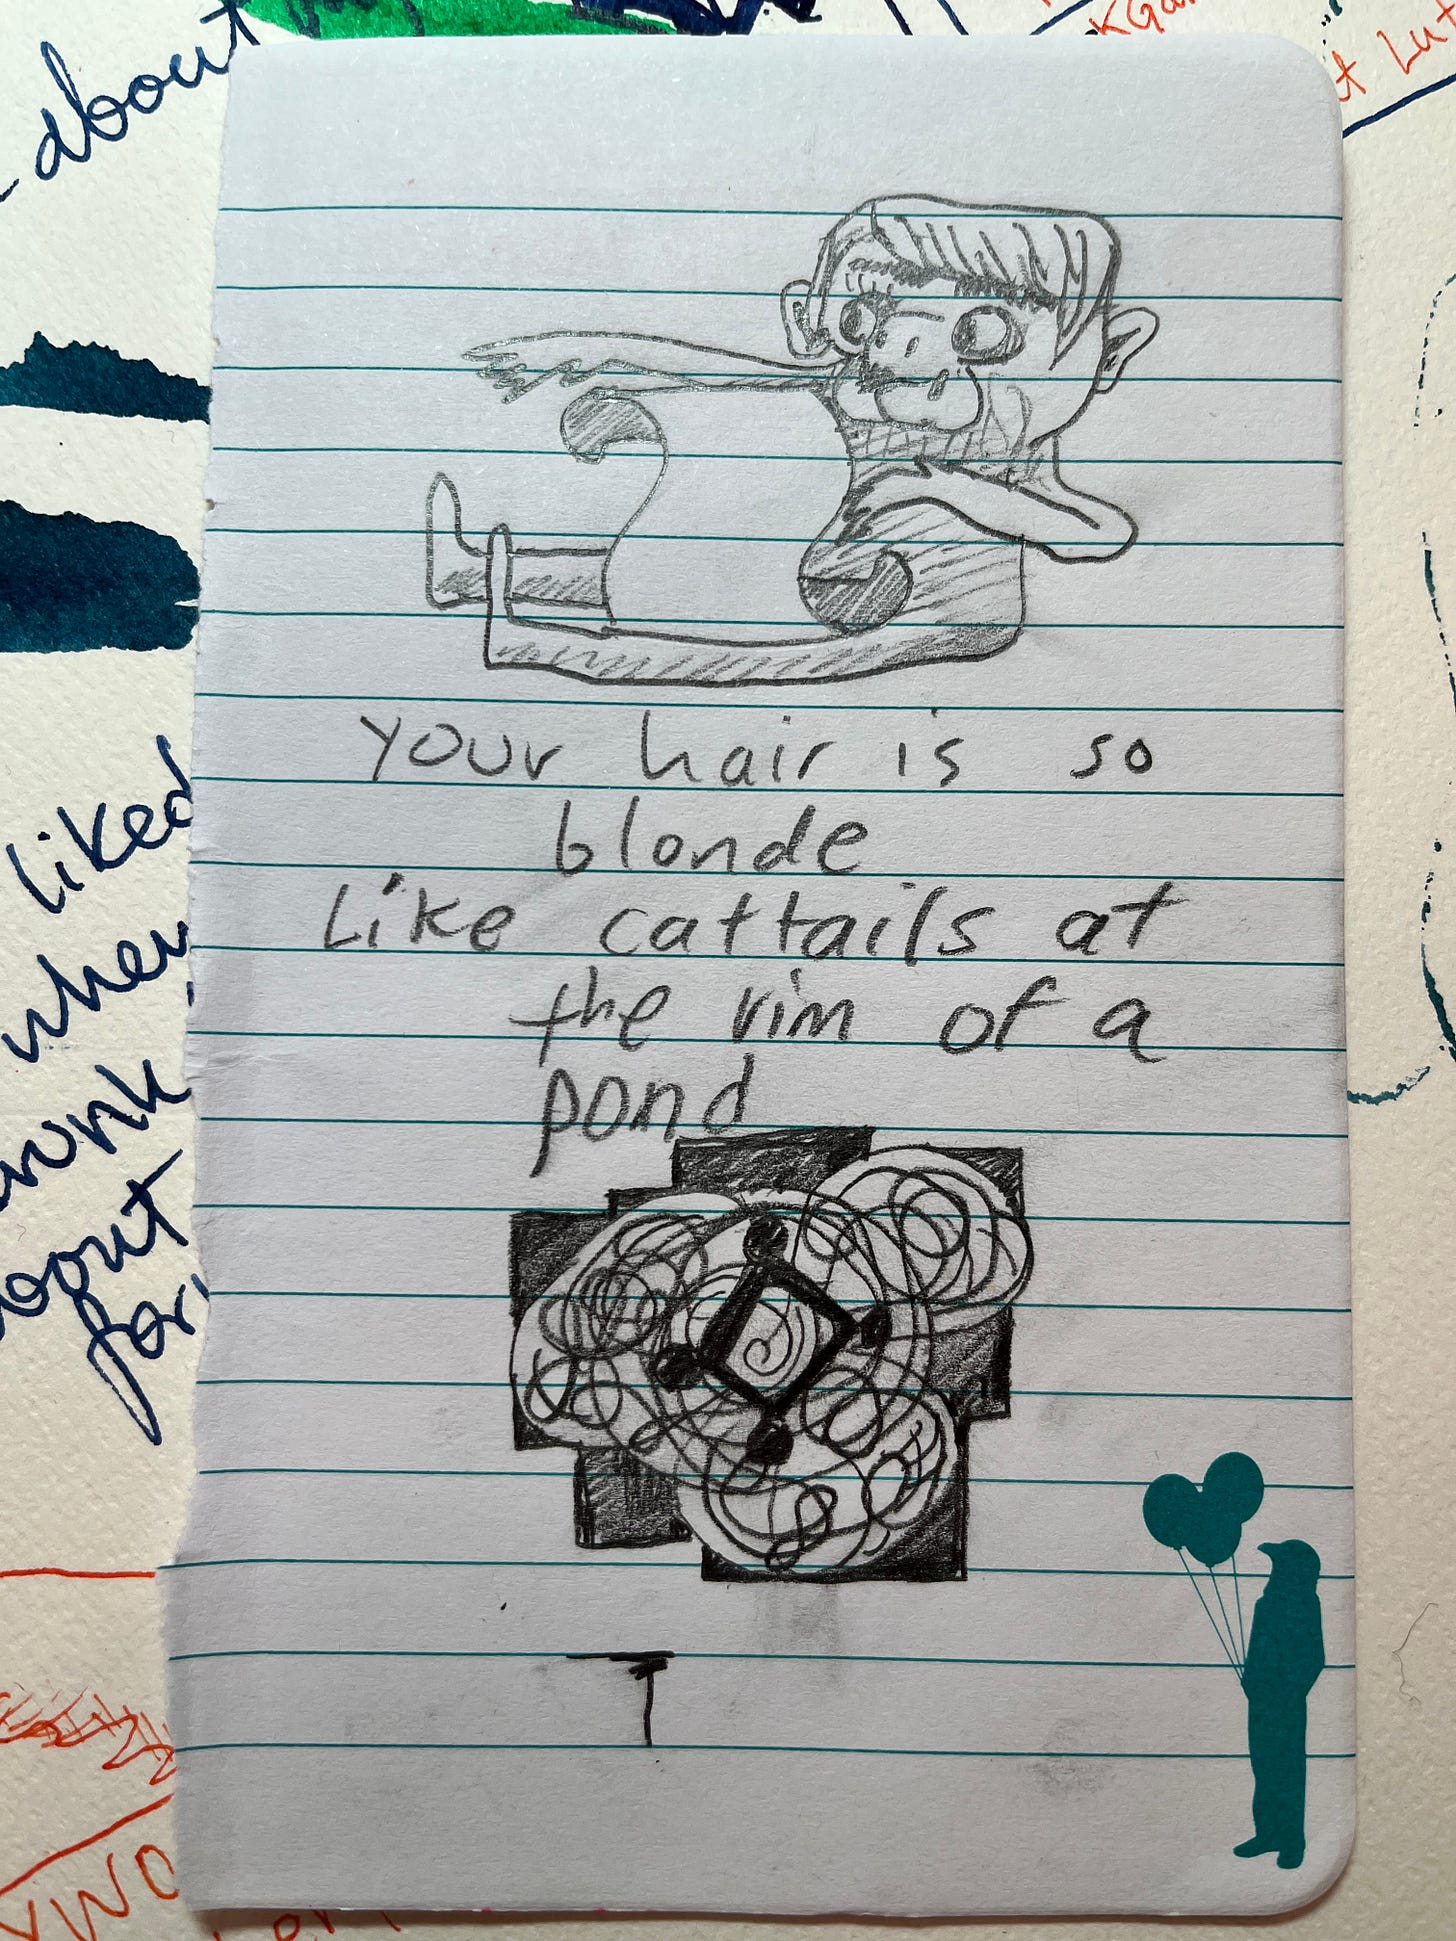 about
KGa
t Lut
your hair is so
blonde
Like cattails at
the rim of a
pond
T
liked
when
for